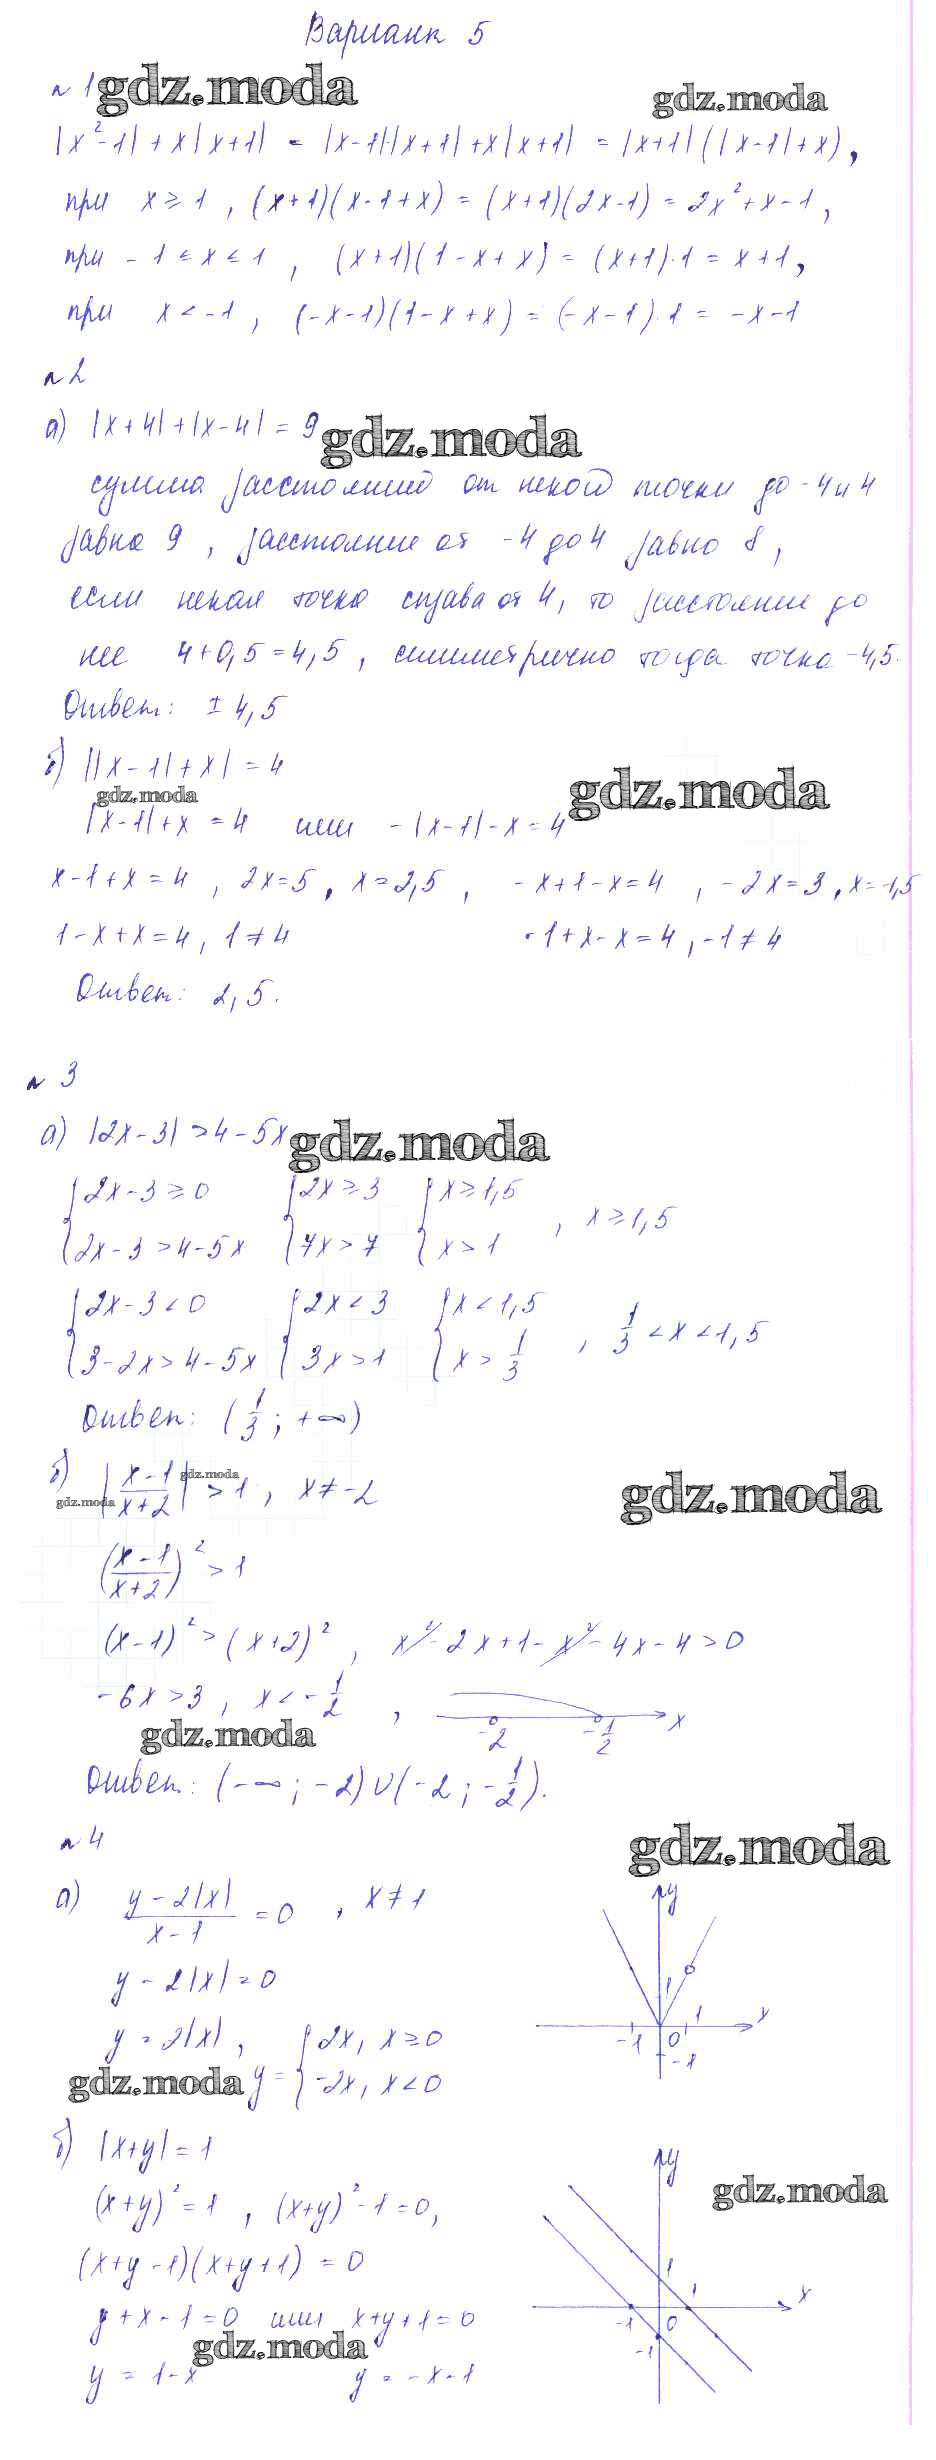 Вариант 5
№ 1 gdz.moda gdz.moda
|x²-1| + x|x+1| = |x-1||x+1| + x|x+1| = |x+1|(|x-1|+x),
при x ≥ 1, (x+1)(x-1+x) = (x+1)(2x-1) = 2x²+x-1,
при -1 ≤ x ≤ 1, (x+1)(1-x+x) = (x+1)·1 = x+1,
при x < -1, (-x-1)(1-x+x) = (-x-1)·1 = -x-1
№ 2
а) |x+4|+|x-4| = 9 gdz.moda
сумма расстояний от некой точки до -4 и 4
равна 9, расстояние от -4 до 4 равно 8,
если некая точка справа от 4, то расстояние до
нее 4+0,5=4,5, симметрично тогда точка -4,5.
Ответ: ± 4,5
б) ||x-1|+x| = 4
gdz.moda gdz.moda
|x-1|+x = 4 или -|x-1|-x = 4
x-1+x = 4, 2x=5, x=2,5, -x+1-x=4, -2x=3, x=-1,5
1-x+x=4, 1≠4 -1+x-x=4, -1≠4
Ответ: 2,5.
№ 3
а) |2x-3| > 4-5x gdz.moda
{2x-3 ≥ 0 {2x ≥ 3 {x ≥ 1,5
{2x-3 > 4-5x {7x > 7 {x > 1 , x ≥ 1,5
{2x-3 < 0 {2x < 3 {x < 1,5
{3-2x > 4-5x {3x > 1 {x > 1/3 , 1/3 < x < 1,5
Ответ: (1/3; +∞)
б) |(x-1)/(x+2)| > 1, x ≠ -2
gdz.moda gdz.moda gdz.moda
((x-1)/(x+2))² > 1
(x-1)² > (x+2)², x²-2x+1-x²-4x-4 > 0
-6x > 3, x < -1/2, -2 -1/2 x
gdz.moda
Ответ: (-∞; -2)∪(-2; -1/2).
№ 4 gdz.moda
а) (y-2|x|)/(x-1) = 0, x ≠ 1
y - 2|x| = 0
y = 2|x|, y = {2x, x ≥ 0
{-2x, x < 0
gdz.moda
y
1
-1 0 1 x
-1
б) |x+y| = 1
(x+y)² = 1, (x+y)²-1=0,
(x+y-1)(x+y+1) = 0
y+x-1=0 или x+y+1=0
gdz.moda
y = 1-x y = -x-1
y
gdz.moda
1 1 x
-1 0
-1